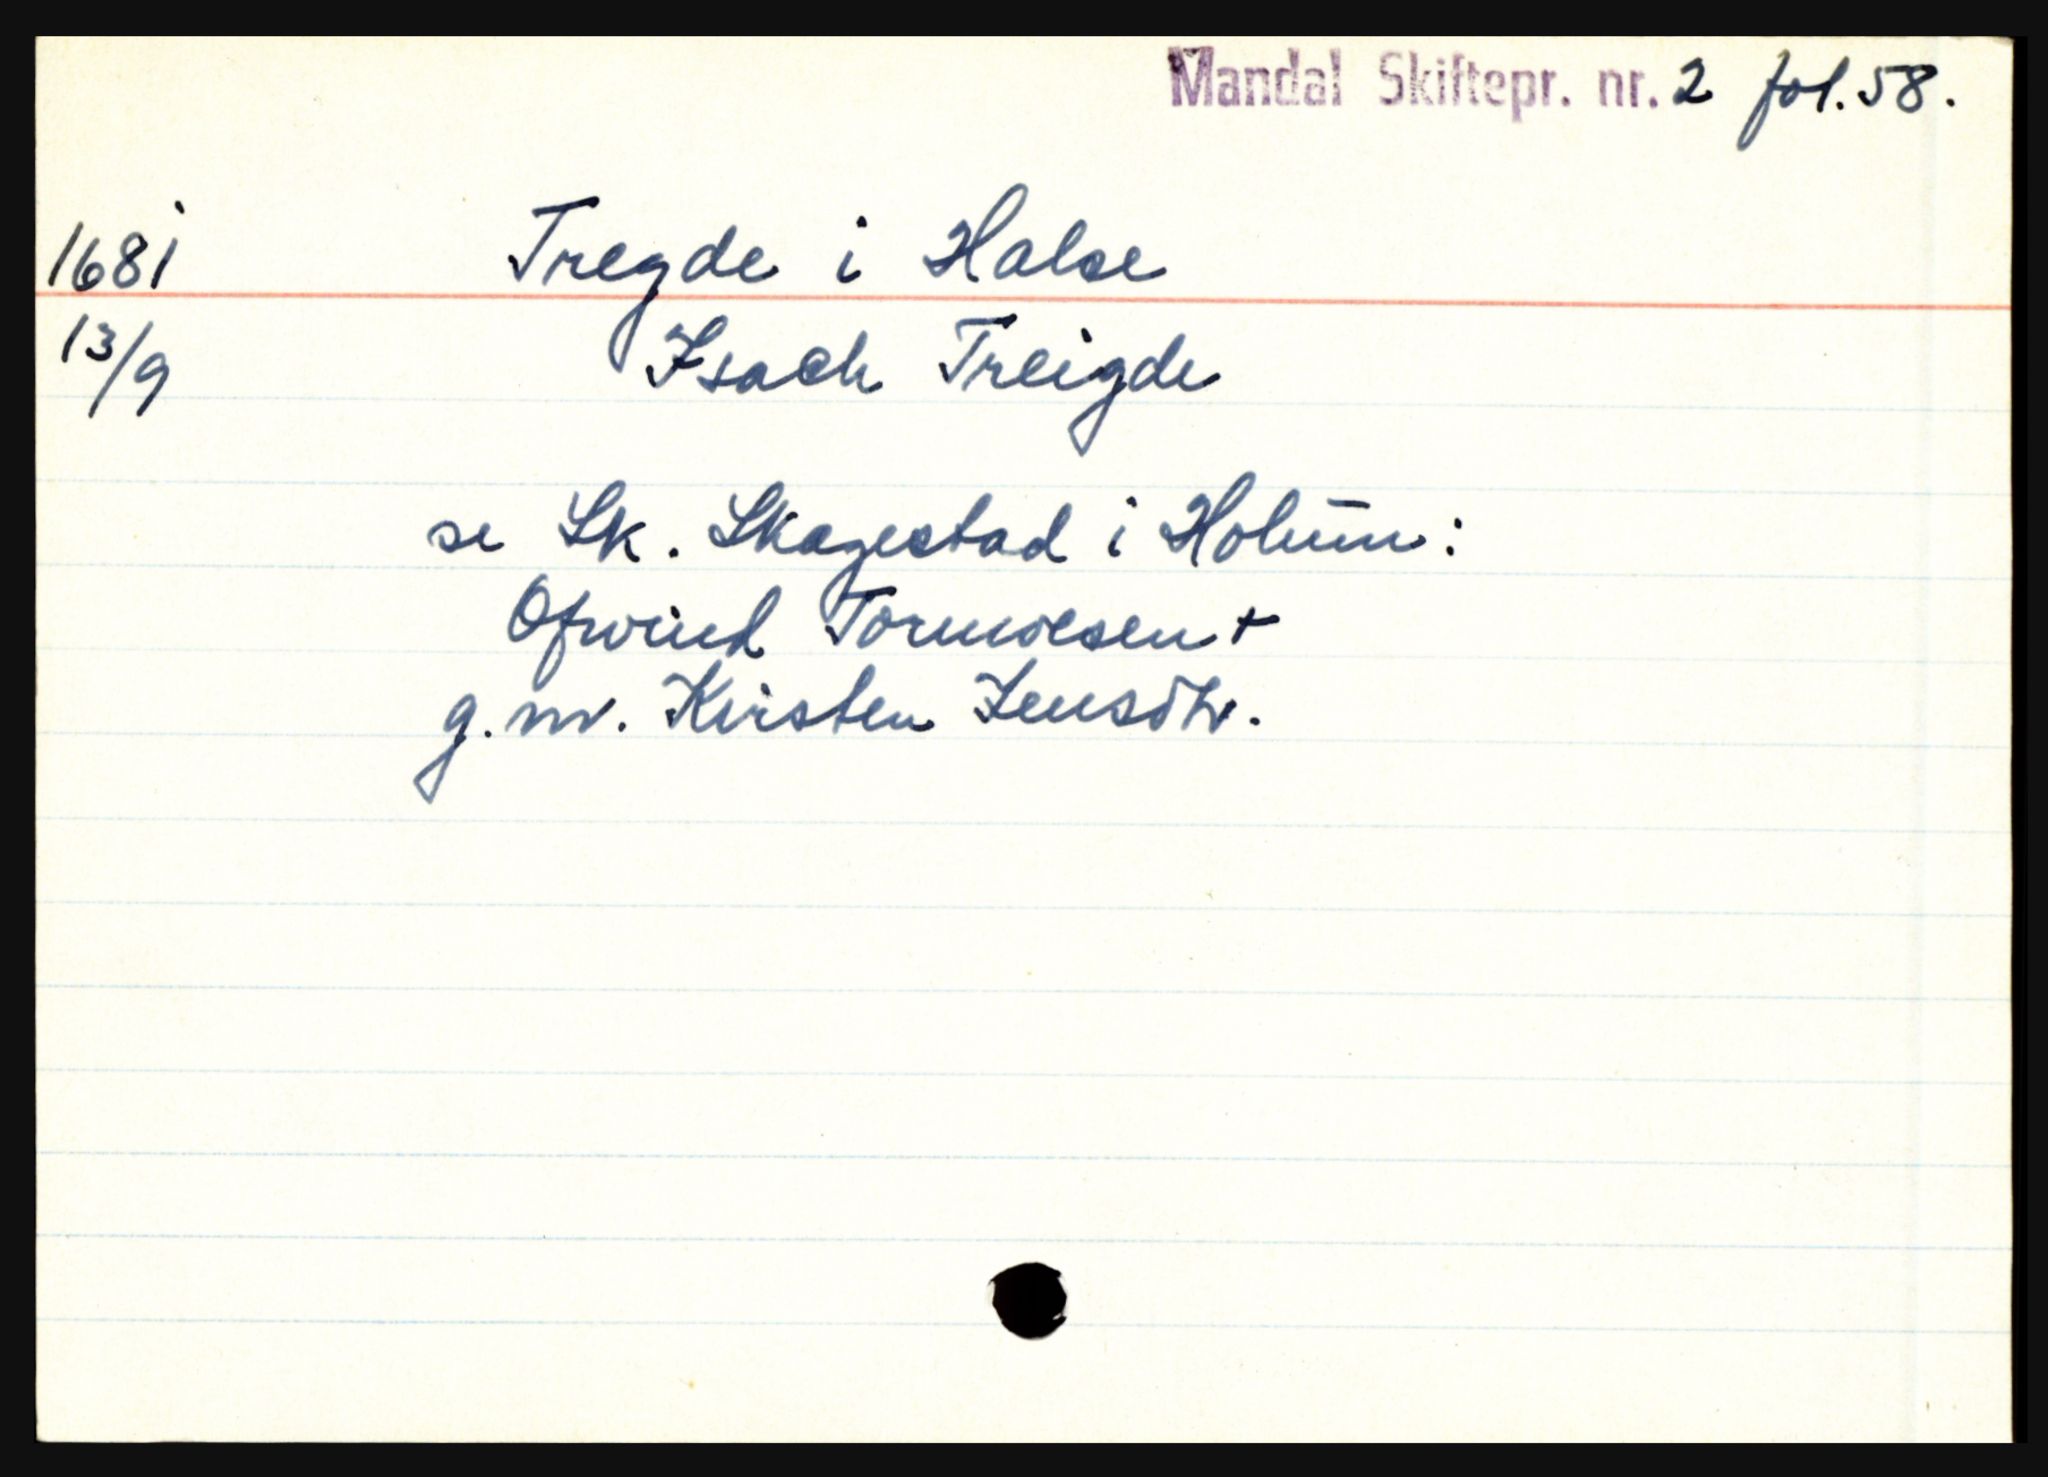 Mandal Skiftepr. nr. 2 fol. 58.
1681 Tregde i Halse
13/9 Isach Treigde
se Sk. Skagestad i Holum:
Ofwind Tormoesen +
g.m. Kirsten Jensdtr.